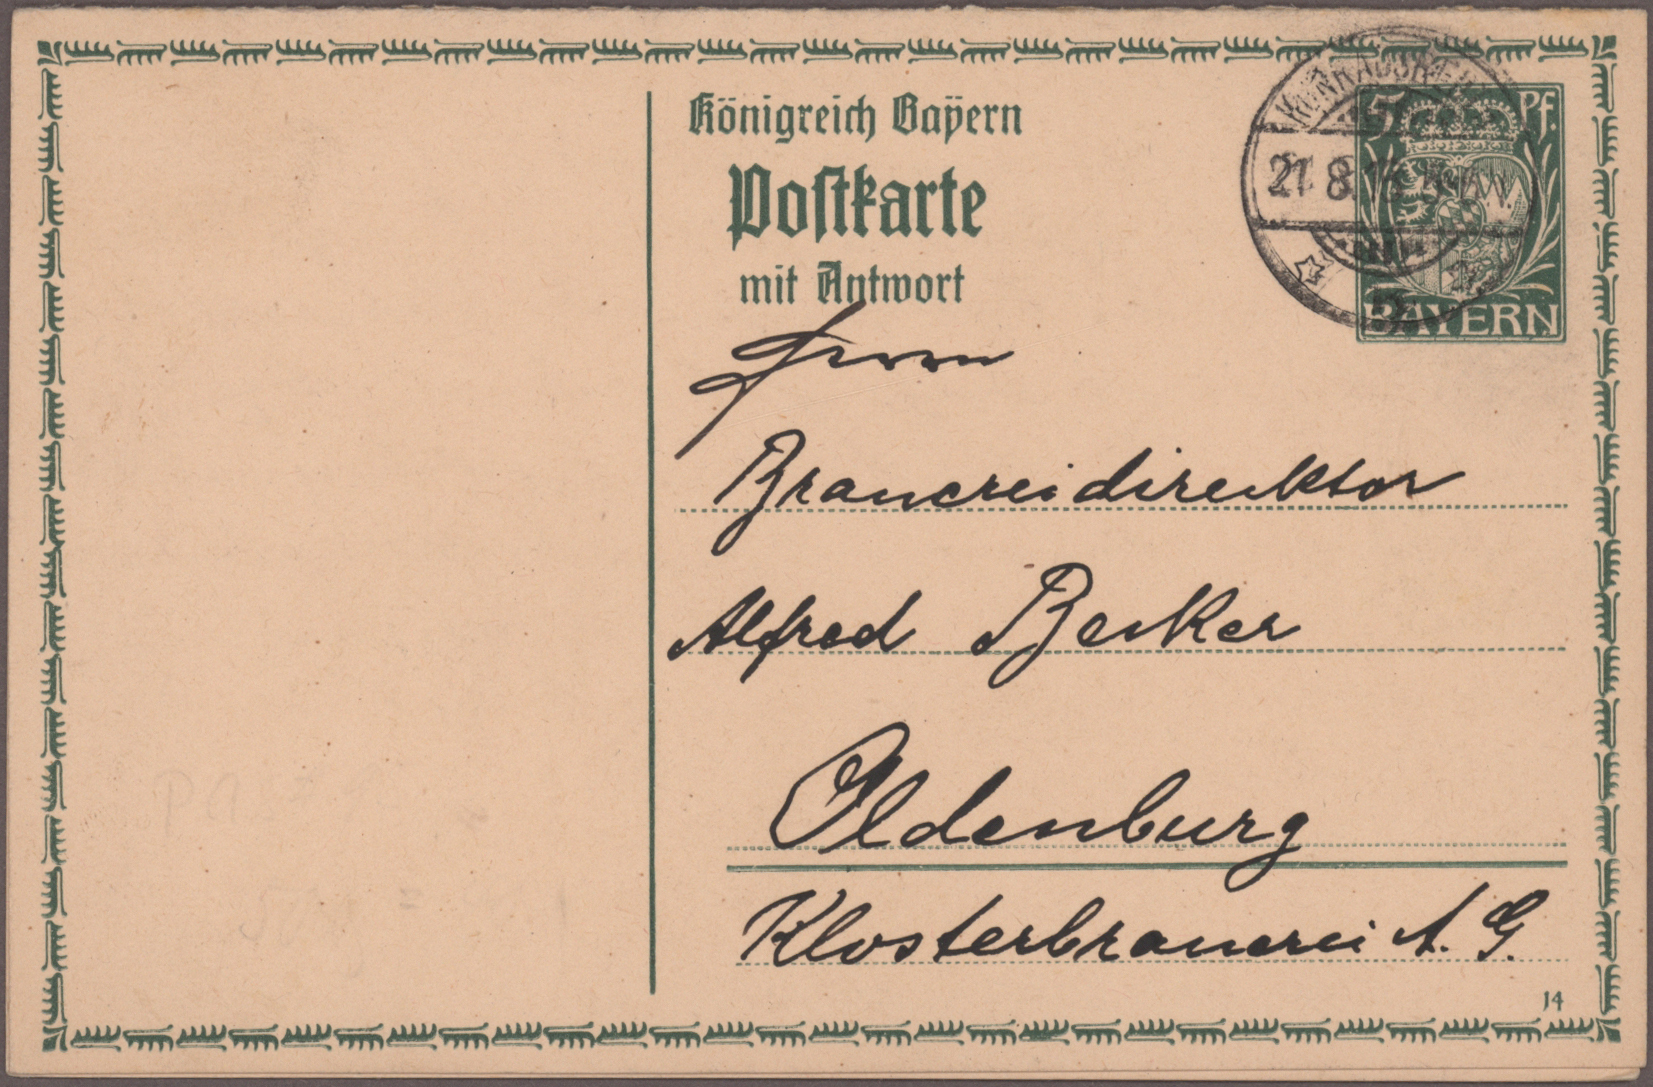 Königreich Bayern
Postkarte
mit Antwort
5 Pf.
BAYERN
21. 8.
Herrn
Brauereidirektor
Alfred Becker
Oldenburg
Klosterbrauerei A. G.
14